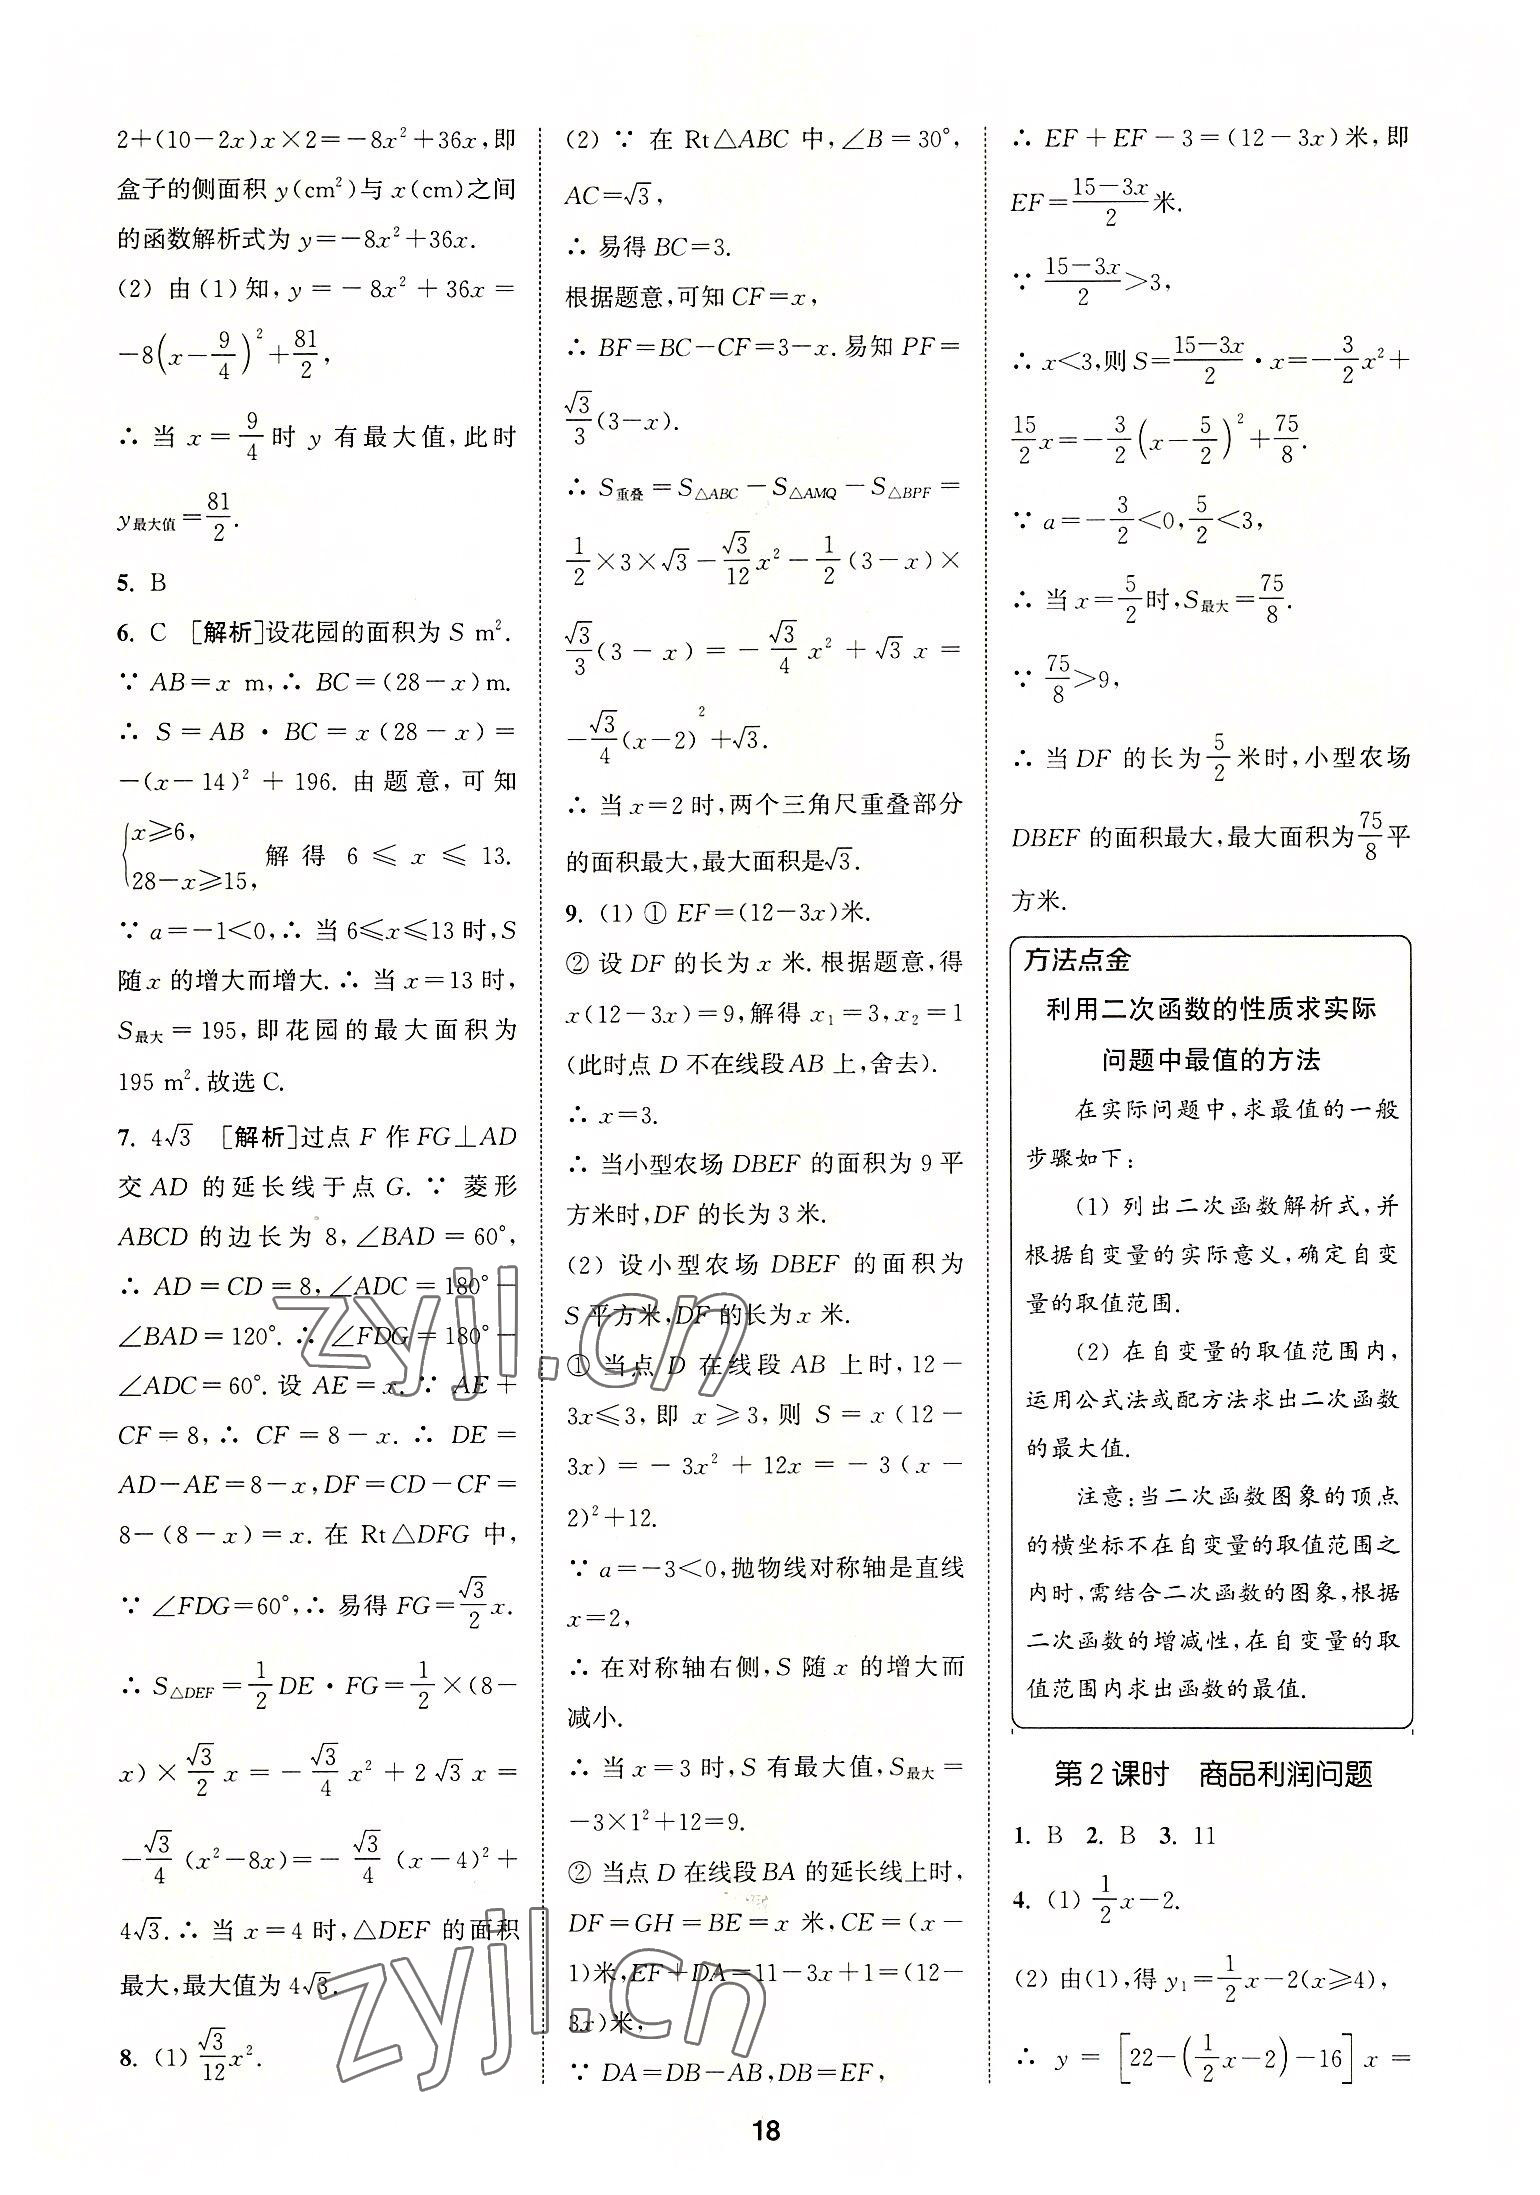 2+(10−2x)x×2=−8x²+36x,即
盒子的侧面积 y(cm²)与 x(cm)之间
的函数解析式为 y=−8x²+36x.
(2) 由(1)知,y=−8x²+36x=
−8(x−9/4)²+81/2,
∴ 当 x=9/4 时 y 有最大值,此时
y最大值=81/2.
5. B
6. C [解析]设花园的面积为 S m².
∵ AB=x m,∴ BC=(28−x)m.
∴ S=AB·BC=x(28−x)=
−(x−14)²+196. 由题意,可知
{x≥6, 28−x≥15, 解得 6≤x≤13.
∵ a=−1<0,∴ 当 6≤x≤13 时,S
随 x 的增大而增大.∴ 当 x=13 时,
S最大=195,即花园的最大面积为
195 m².故选C.
7. 4√3 [解析]过点 F 作 FG⊥AD
交 AD 的延长线于点 G.∵ 菱形
ABCD 的边长为 8,∠BAD=60°,
∴ AD=CD=8,∠ADC=180°−
∠BAD=120°.∴ ∠FDG=180°−
∠ADC=60°.设 AE=x.∵ AE+
CF=8,∴ CF=8−x.∴ DE=
AD−AE=8−x,DF=CD−CF=
8−(8−x)=x.在 Rt△DFG 中,
∵ ∠FDG=60°,∴ 易得 FG=√3/2 x.
∴ S△DEF=1/2 DE·FG=1/2×(8−
x)×√3/2 x=−√3/4 x²+2√3 x=
−√3/4 (x²−8x)=−√3/4 (x−4)²+
4√3.∴ 当 x=4 时,△DEF 的面积
最大,最大值为 4√3.
8. (1) √3/12 x².
(2) ∵ 在 Rt△ABC 中,∠B=30°,
AC=√3,
∴ 易得 BC=3.
根据题意,可知 CF=x,
∴ BF=BC−CF=3−x.易知 PF=
√3/3 (3−x).
∴ S重叠=S△ABC−S△AMQ−S△BPF=
1/2×3×√3−√3/12 x²−1/2 (3−x)×
√3/3 (3−x)=−√3/4 x²+√3 x=
−√3/4 (x−2)²+√3.
∴ 当 x=2 时,两个三角尺重叠部分
的面积最大,最大面积是√3.
9. (1) ① EF=(12−3x)米.
② 设 DF 的长为 x 米.根据题意,得
x(12−3x)=9,解得 x₁=3,x₂=1
(此时点 D 不在线段AB 上,舍去).
∴ x=3.
∴ 当小型农场 DBEF 的面积为 9 平
方米时,DF 的长为 3 米.
(2) 设小型农场 DBEF 的面积为
S 平方米,DF 的长为 x 米.
① 当点 D 在线段 AB 上时,12−
3x≤3,即 x≥3,则 S=x(12−
3x)=−3x²+12x=−3(x−
2)²+12.
∵ a=−3<0,抛物线对称轴是直线
x=2,
∴ 在对称轴右侧,S 随 x 的增大而
减小.
∴ 当 x=3 时,S 有最大值,S最大=
−3×1²+12=9.
② 当点 D 在线段BA 的延长线上时,
DF=GH=BE=x 米,CE=(x−
1)米,EF+DA=11−3x+1=(12−
3x)米,
∵ DA=DB−AB,DB=EF,
∴ EF+EF−3=(12−3x)米,即
EF=(15−3x)/2 米.
∵ (15−3x)/2>3,
∴ x<3,则 S=(15−3x)/2·x=−3/2 x²+
15/2 x=−3/2 (x−5/2)²+75/8.
∵ a=−3/2<0,5/2<3,
∴ 当 x=5/2 时,S最大=75/8.
∵ 75/8>9,
∴ 当 DF 的长为 5/2 米时,小型农场
DBEF 的面积最大,最大面积为 75/8 平
方米.
方法点金
利用二次函数的性质求实际
问题中最值的方法
在实际问题中,求最值的一般
步骤如下:
(1) 列出二次函数解析式,并
根据自变量的实际意义,确定自变
量的取值范围.
(2) 在自变量的取值范围内,
运用公式法或配方法求出二次函数
的最大值.
注意:当二次函数图象的顶点
的横坐标不在自变量的取值范围之
内时,需结合二次函数的图象,根据
二次函数的增减性,在自变量的取
值范围内求出函数的最值.
第 2 课时 商品利润问题
1. B 2. B 3. 11
4. (1) 1/2 x−2.
(2) 由(1),得 y₁=1/2 x−2(x≥4),
∴ y=[22−(1/2 x−2)−16]x=
18
zyjl.cn
zyjl.cn